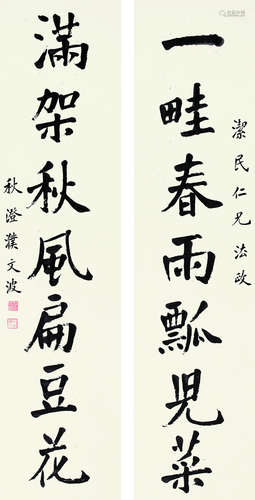 潔民仁兄法政
一畦春雨瓢兒菜
滿架秋風扁豆花
秋澄濮文波